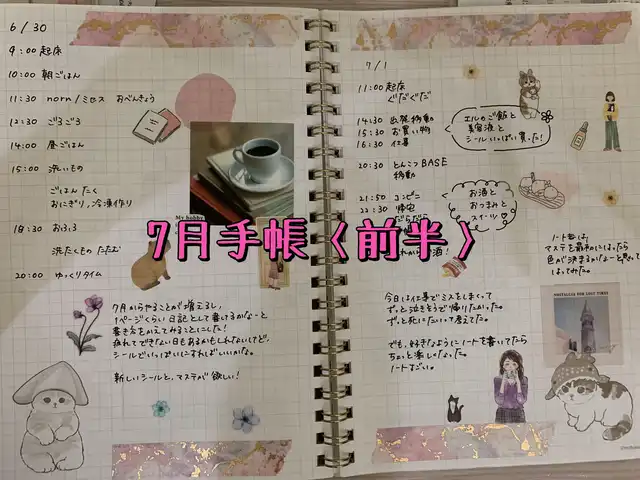 6/30
9:00 起床
10:00 朝ごはん
11:30 norn/ミセス おべんきょう
12:30 ごろごろ
14:00 昼ごはん
15:00 洗いもの
ごはんたく
おにぎり、冷凍作り
18:30 おふろ
洗たくもの たたむ
20:00 ゆっくりタイム
My hobby
7月からやることが増えるし、
1ページくらい日記として書けるかな〜と
書き方をかえてみることにした!
疲れてできない日もあるかもしれないけど、
シールでいっぱいにすればいいかな。
新しいシールと、マステが欲しい!
7月手帳〈前半〉
7/1
11:00 起床
ぐだぐだ
14:30 出発移動
15:30 お買い物
16:30 仕事
20:30 とんこつBASE
移動
21:50 コンビニ
22:30 帰宅
だらだら
酒!
エルのご飯と
美容液と
シールいっぱい買った!
お酒と
おつまみと
スイーツ♡
ノート上は、
マステを最初にはったら
色が決まるかな〜と思って
はってみた。
NOSTALGIA FOR LOST TIMES
今日は仕事でミスをしまくって
ずっと泣きそうで帰りたかった。
ずっと死にたいって考えてた。
でも、好きなようにノートを書いてたら
ちょっと楽しくなった。
ノートすごい。